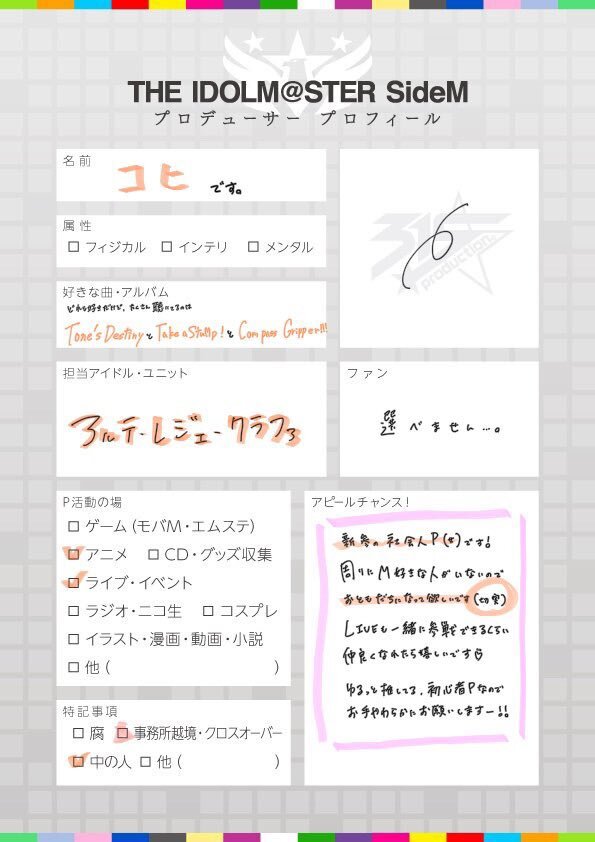 THE IDOLM@STER SideM
プロデューサー プロフィール
名前
コヒ です。
315 production.
属性
□ フィジカル □ インテリ □ メンタル
好きな曲・アルバム
どれも好きだけど、たくさん聴いてるのは
Tone's Destinyと Take a StuMp!と Compass Gripper!!!
担当アイドル・ユニット
アルテ・レジェ・クラフろ
ファン
選べません…。
P活動の場
□ ゲーム(モバM・エムステ)
□ アニメ □ CD・グッズ収集
□ ライブ・イベント
□ ラジオ・ニコ生 □ コスプレ
□ イラスト・漫画・動画・小説
□ 他( )
特記事項
□ 腐 □ 事務所越境・クロスオーバー
□ 中の人 □ 他( )
アピールチャンス!
新参の社会人P(女)です!
周りにM好きな人がいないので
おともだちになって欲しいです(切実)
LIVEも一緒に参戦できるくらい
仲良くなれたら嬉しいです♡
ゆるっと推してる、初心者Pなので
お手やわらかにお願いしますー!!